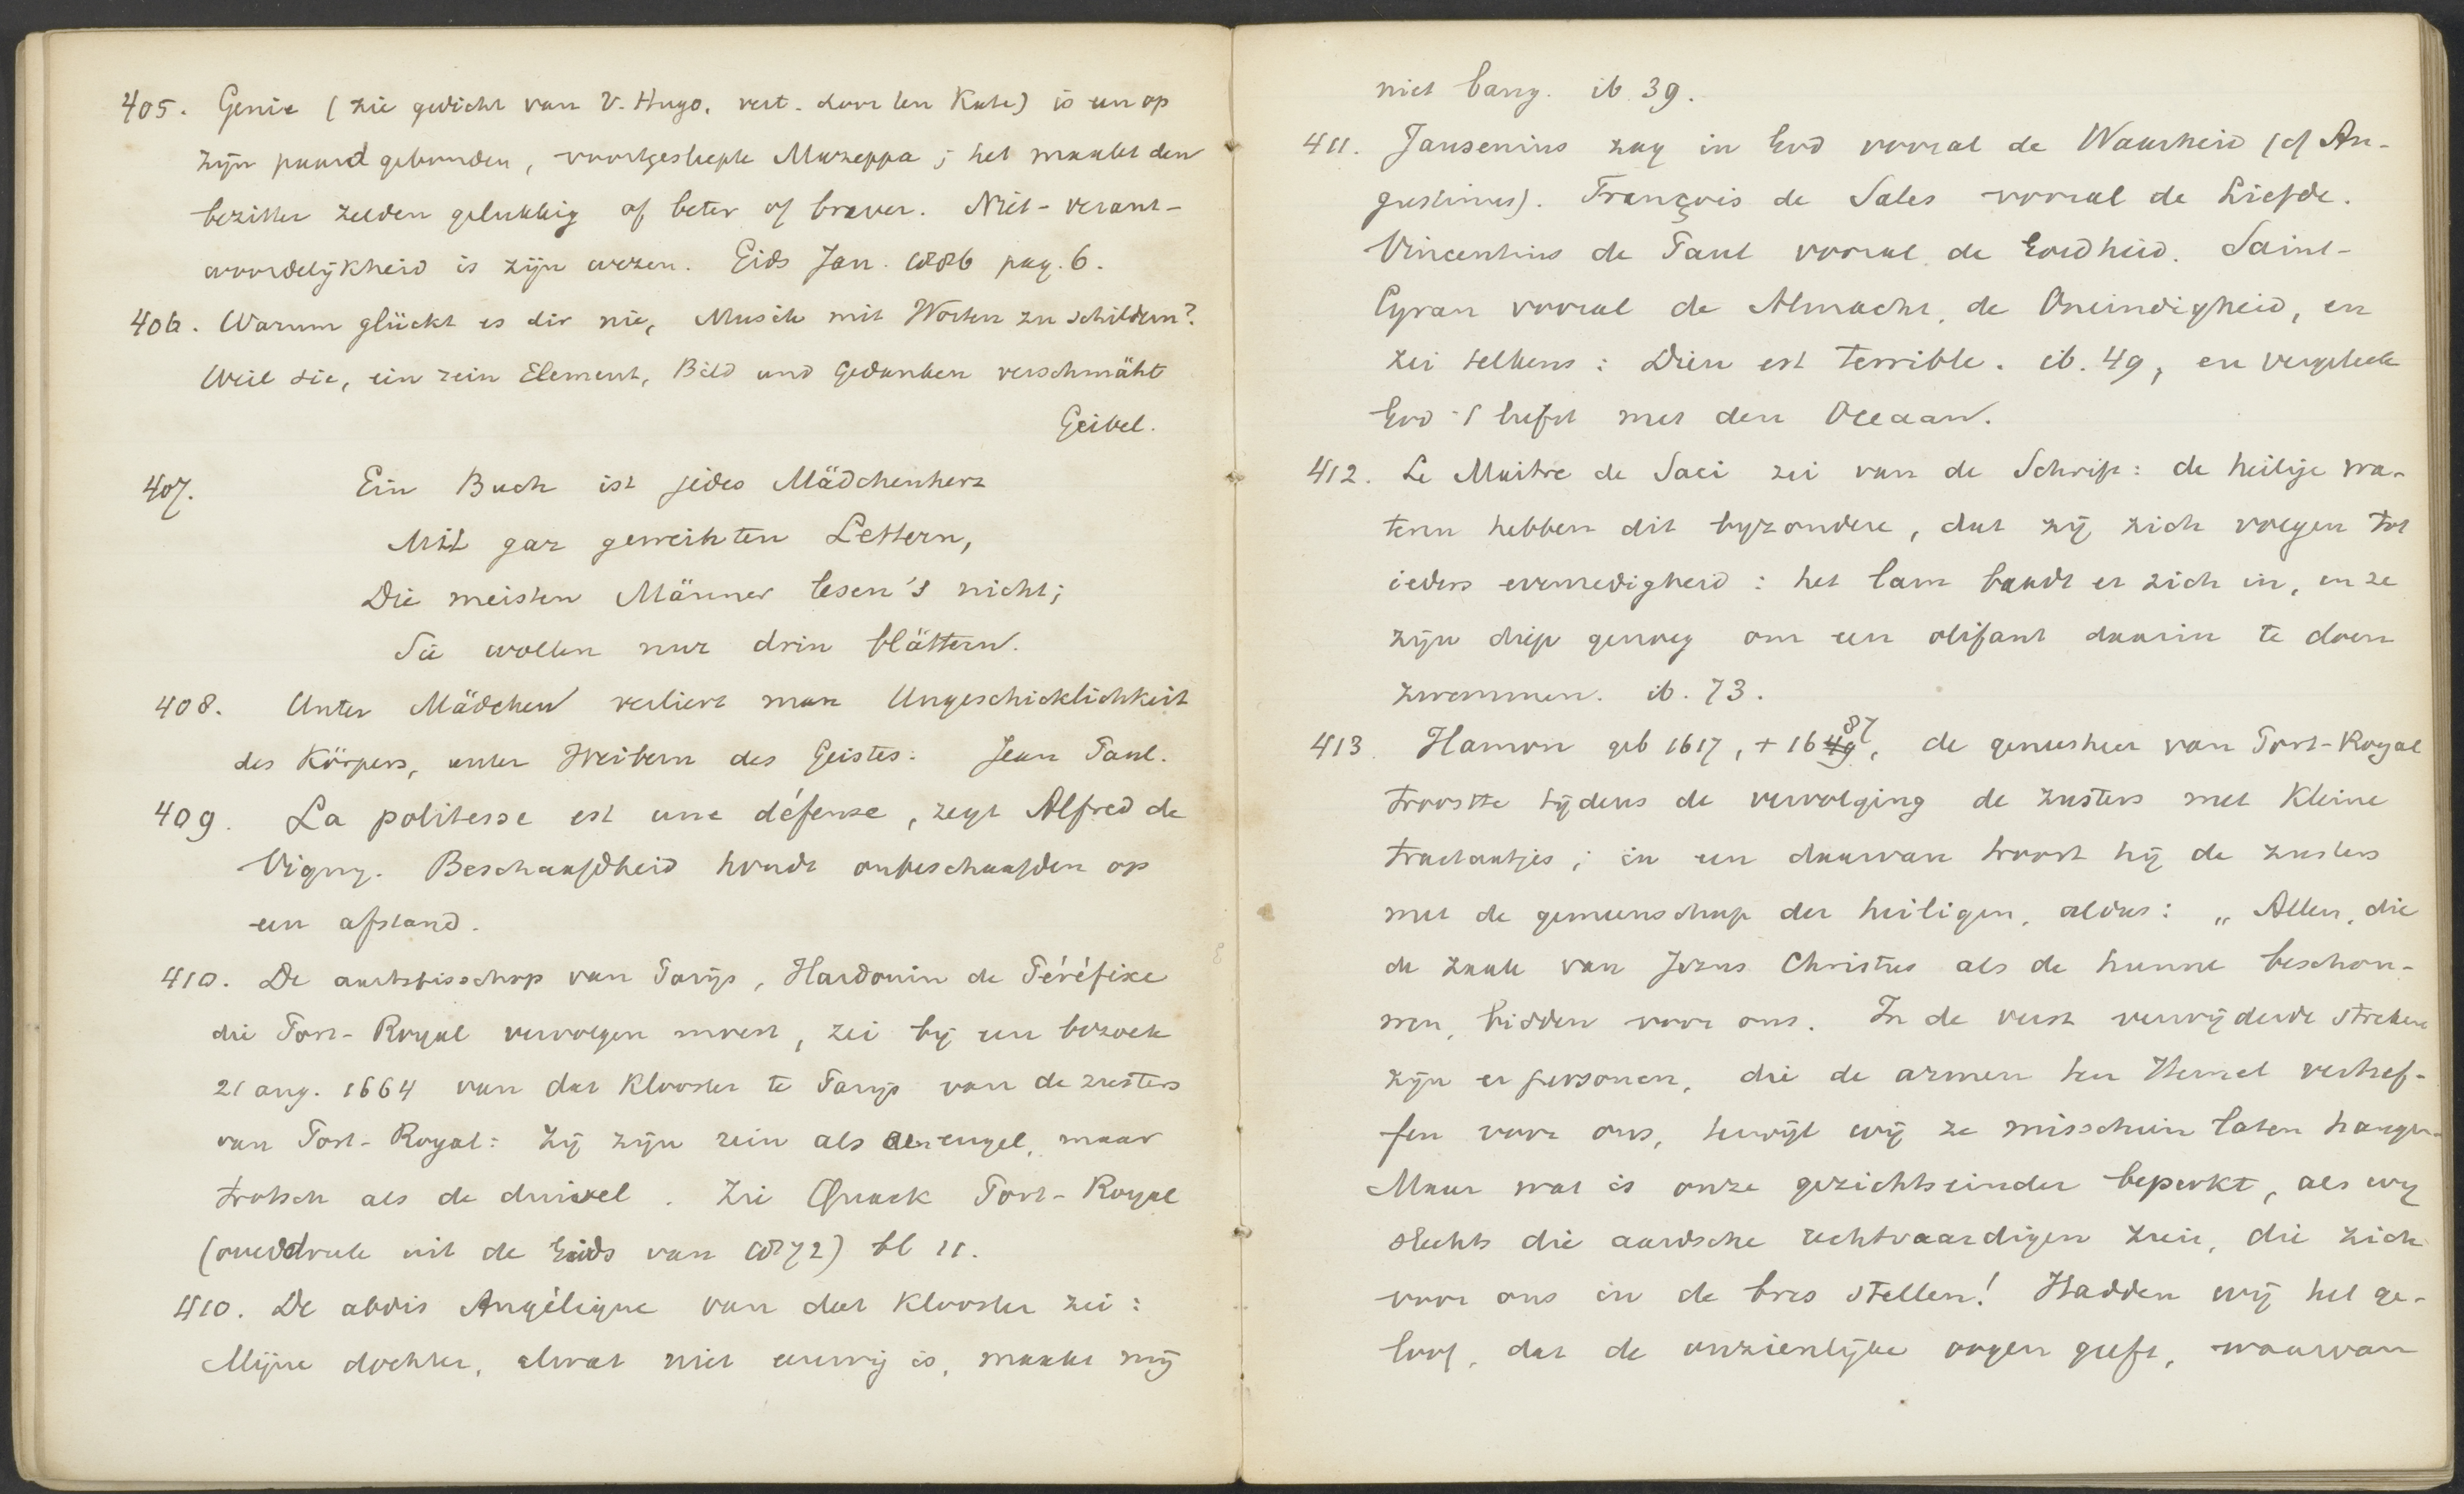 405. Genie (zie gedicht van V. Hugo, vert. door ten Kate) is een op
zijn paard gebonden, voortgesleepte Mazeppa; het maakt den
bezitter zelden gelukkig of beter of braver. Niet-verant-
woordelijkheid is zijn wezen. Gids Jan. 1886 pag. 6.
406. Warum glückt es dir nie, Musik mit Worten zu schildern?
Weil sie, ein rein Element, Bild und Gedanken verschmäht
Geibel.
407. Ein Buch ist jedes Mädchenherz
Mit gar geweihten Lettern,
Die meisten Männer lesen's nicht;
Sie wollen nur drin blättern.
408. Unter Mädchen verliert man Ungeschicklichkeit
des Körpers, unter Weibern des Geistes. Jean Paul.
409. La politesse est une défense, zegt Alfred de
Vigny. Beschaafdheid houdt onbeschaafden op
een afstand.
410. De aartsbisschop van Parijs, Hardouin de Péréfixe
die Port-Royal vervolgen moest, zei bij een bezoek
21 aug. 1664 van dat klooster te Parijs van de zusters
van Port-Royal: Zij zijn rein als een engel, maar
trotsch als de duivel. Zie Quack Port-Royal
(overdruk uit de Gids van 1872) bl 11.
410. De abdis Angélique van dat klooster zei:
Mijne dochter, alwat niet eeuwig is, maakt mij
niet bang. ib. 39.
411. Jansenius zag in God vooral de Waarheid (cf Au-
gustinus). François de Sales vooral de Liefde.
Vincentius de Paul vooral de Goedheid. Saint-
Cyran vooral de Almacht, de Oneindigheid, en
zei telkens: Dieu est terrible. ib. 49, en vergeleek
God 't liefst met den Oceaan.
412. Le Maitre de Saci zei van de Schrift: de heilige wa-
teren hebben dit byzondere, dat zij zich voegen tot
ieders evenredigheid: het lam baadt er zich in, en ze
zijn diep genoeg om een olifant daarin te doen
zwemmen. ib. 73.
413. Hamon geb 1617, + 1649 87, de geneesheer van Port-Royal
troostte tijdens de vervolging de zusters met kleine
tractaatjes; in een daarvan troost hij de zusters
met de gemeenschap der heiligen, aldus: „Allen, die
de zaak van Jezus Christus als de hunne beschou-
wen, bidden voor ons. In de verst verwijderde streken
zijn er personen, die de armen ten Hemel verhef-
fen voor ons, terwijl wij ze misschien laten hangen.
Maar wat is onze gezichtseinder beperkt, als wij
slechts die aardsche rechtvaardigen zien, die zich
voor ons in de bres stellen! Hadden wij het ge-
loof, dat de onzienlijke oogen geeft, waarvan